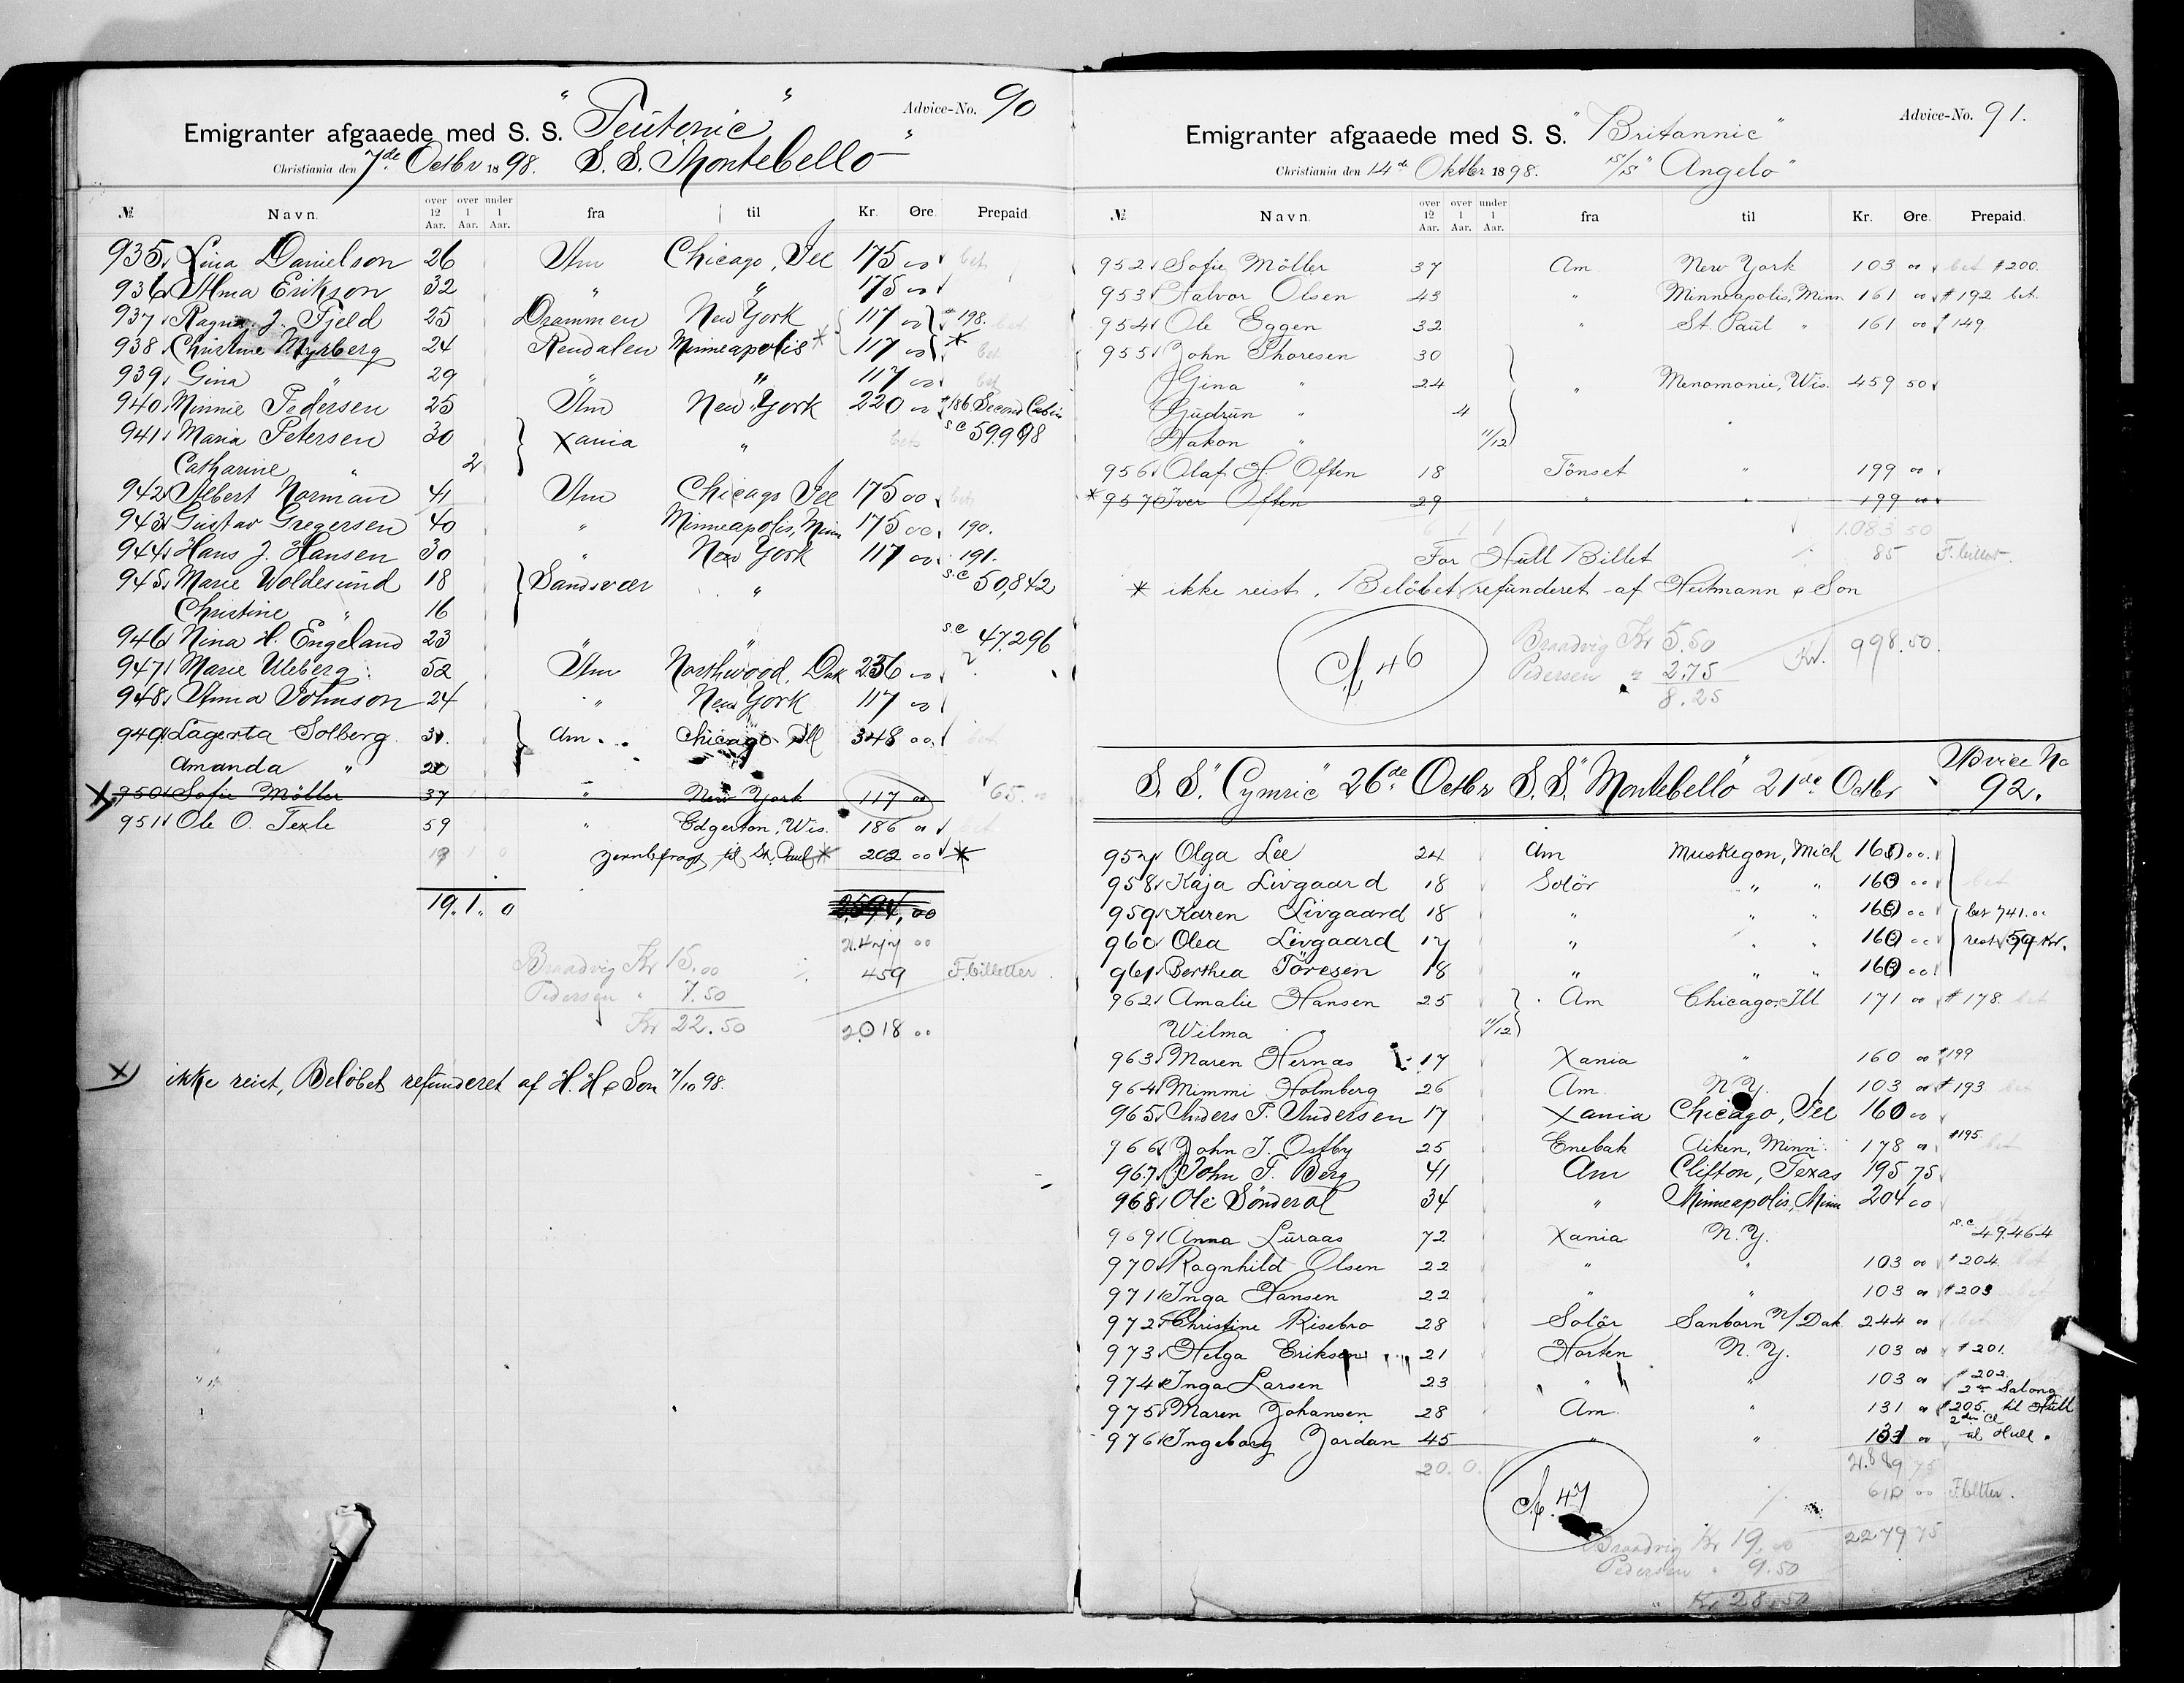 Emigranter afgaaede med S. S. "Teutonic" Advice-No. 90
Christiania den 7de Octbr 1898. S. S. Montebello"
№ Navn. over 12 Aar. over 1 Aar. under 1 Aar. fra til Kr. Øre. Prepaid.
935 Lina Danielson 26 Am Chicago, Ill 175 00 bet
936 Alma Erikson 32 " " 175 00
937 Ragna J. Fjeld 25 Drammen New York 117 00 # 198. bet
938 Christine Myrberg 24 Rendalen Minneapolis * 117 00 * bet
939 Gina " 29 " " 117 00 bet
940 Minnie Pedersen 25 Am New York 220 00 #186 Second Cabin
941 Maria Petersen 30 Xania " bet s.c 59.998
Catharine " 2
942 Albert Norman 41 Am Chicago Ill 175 00 bet
943 Gustav Gregersen 40 " Minneapolis, Minn 175 00 190.
944 Hans J. Hansen 30 " New York 117 00 191.
945 Marie Woldesund 18 Sandsvær " s.c 50,842
Christine " 16
946 Nina H. Engeland 23 " " s.c 47.296
947 Marie Uleberg 52 Am Northwood, Dak 236 00
948 Anna Johnson 24 " New York 117 00
949 Lagerta Solberg 31. Am. Chicago Ill 348 00
Amanda " 20
X 950 Sofie Möller 37 " New York 117 00 65.
951 Ole O. Texle 59 " Edgerton, Wis. 186 00
19 1 0 jernbefragt til St. Paul * 202 00 *
19. 1. 0 00
2.477 00
Braadvig Kr 15.00 ./. 459 F.billetter.
Pedersen " 7.50
Kr 22.50 2018 00
X ikke reist, Beløbet refunderet af H. H & Son 7/10 98.
Emigranter afgaaede med S. S. "Britannic" Advice-No. 91.
Christiania den 14de Oktbr 1898. S/S "Angelo"
№ Navn. over 12 Aar. over 1 Aar. under 1 Aar. fra til Kr. Øre. Prepaid.
952 Sofie Möller 37 Am New York 103 00 bet #200.
953 Halvor Olsen 43 " Minneapolis, Minn 161 00 #192 bet.
954 Ole Eggen 32 " St. Paul " 161 00 # 149
955 John Thoresen 30
Gina " 24 " Menomonie, Wis. 459 50
Gudrun " 4
Hakon " 11/12
956 Olaf H. Often 18 Tönset " 199 00
* 957 Iver Often 29 " " 199 00
6 1 1 1.083 50
For Hull Billet ./. 85 F.billet.
* ikke reist. Beløbet refunderet af Heitmann & Son
Cf. 46
Braadvig Kr 5.50 Kr. 998.50.
Pedersen " 2.75
8.25
S. S. "Cymric" 26de Octbr S. S. "Montebello" 21de Octbr Advice No 92.
957 Olga Lee 24 Am Muskegon, Mich 160 00
958 Kaja Livgaard 18 Solör " " 160 00 bet
959 Karen Livgaard 18 " " " 160 00 bet 741.00
960 Olea Livgaard 17 " " " 160 00 rest 59 Kr.
961 Berthea Töresen 18 " " " 160 00
962 Amalie Hansen 25 Am Chicago, Ill 171 00 # 178. bet
Wilma " 11/12
963 Maren Hernæs 17 Xania " 160 00 #199
964 Mimmi Holmberg 26 Am. N.Y. 103 00 # 193 bet
965 Anders P. Andersen 17 Xania Chicago, Ill 160 00
966 John J. Ostby 25 Enebak Aiken, Minn. 178 00 #195 bet
967 John T. Berg 41 Am Clifton, Texas 195 75
968 Ole Sönderal 34 " Minneapolis, Minn 204 00
969 Anna Luraas 72 Xania N.Y. s.c 49.464
970 Ragnhild Olsen 22 " " 103 00 # 204. bet
971 Inga Hansen 22 " " 103 00 # 203 bet
972 Christine Risebro 28 Solör Sanborn N/Dak 244 00 bet
973 Helga Eriksen 21 Horten N.Y. 103 00 # 201.
974 Inga Larsen 23 " " 103 00 # 202.
975 Maren Johansen 28 Am. " 131 00 # 205. 2den Salong til Hull
976 Ingeborg Jordan 45 " " 131 00 2den Cl til Hull.
20. 0. 2.889 75
Cf. 47 ./. 610 00 F.billetter.
Braadvig Kr 19.00 2279 75
Pedersen " 9.50
Kr 28.50